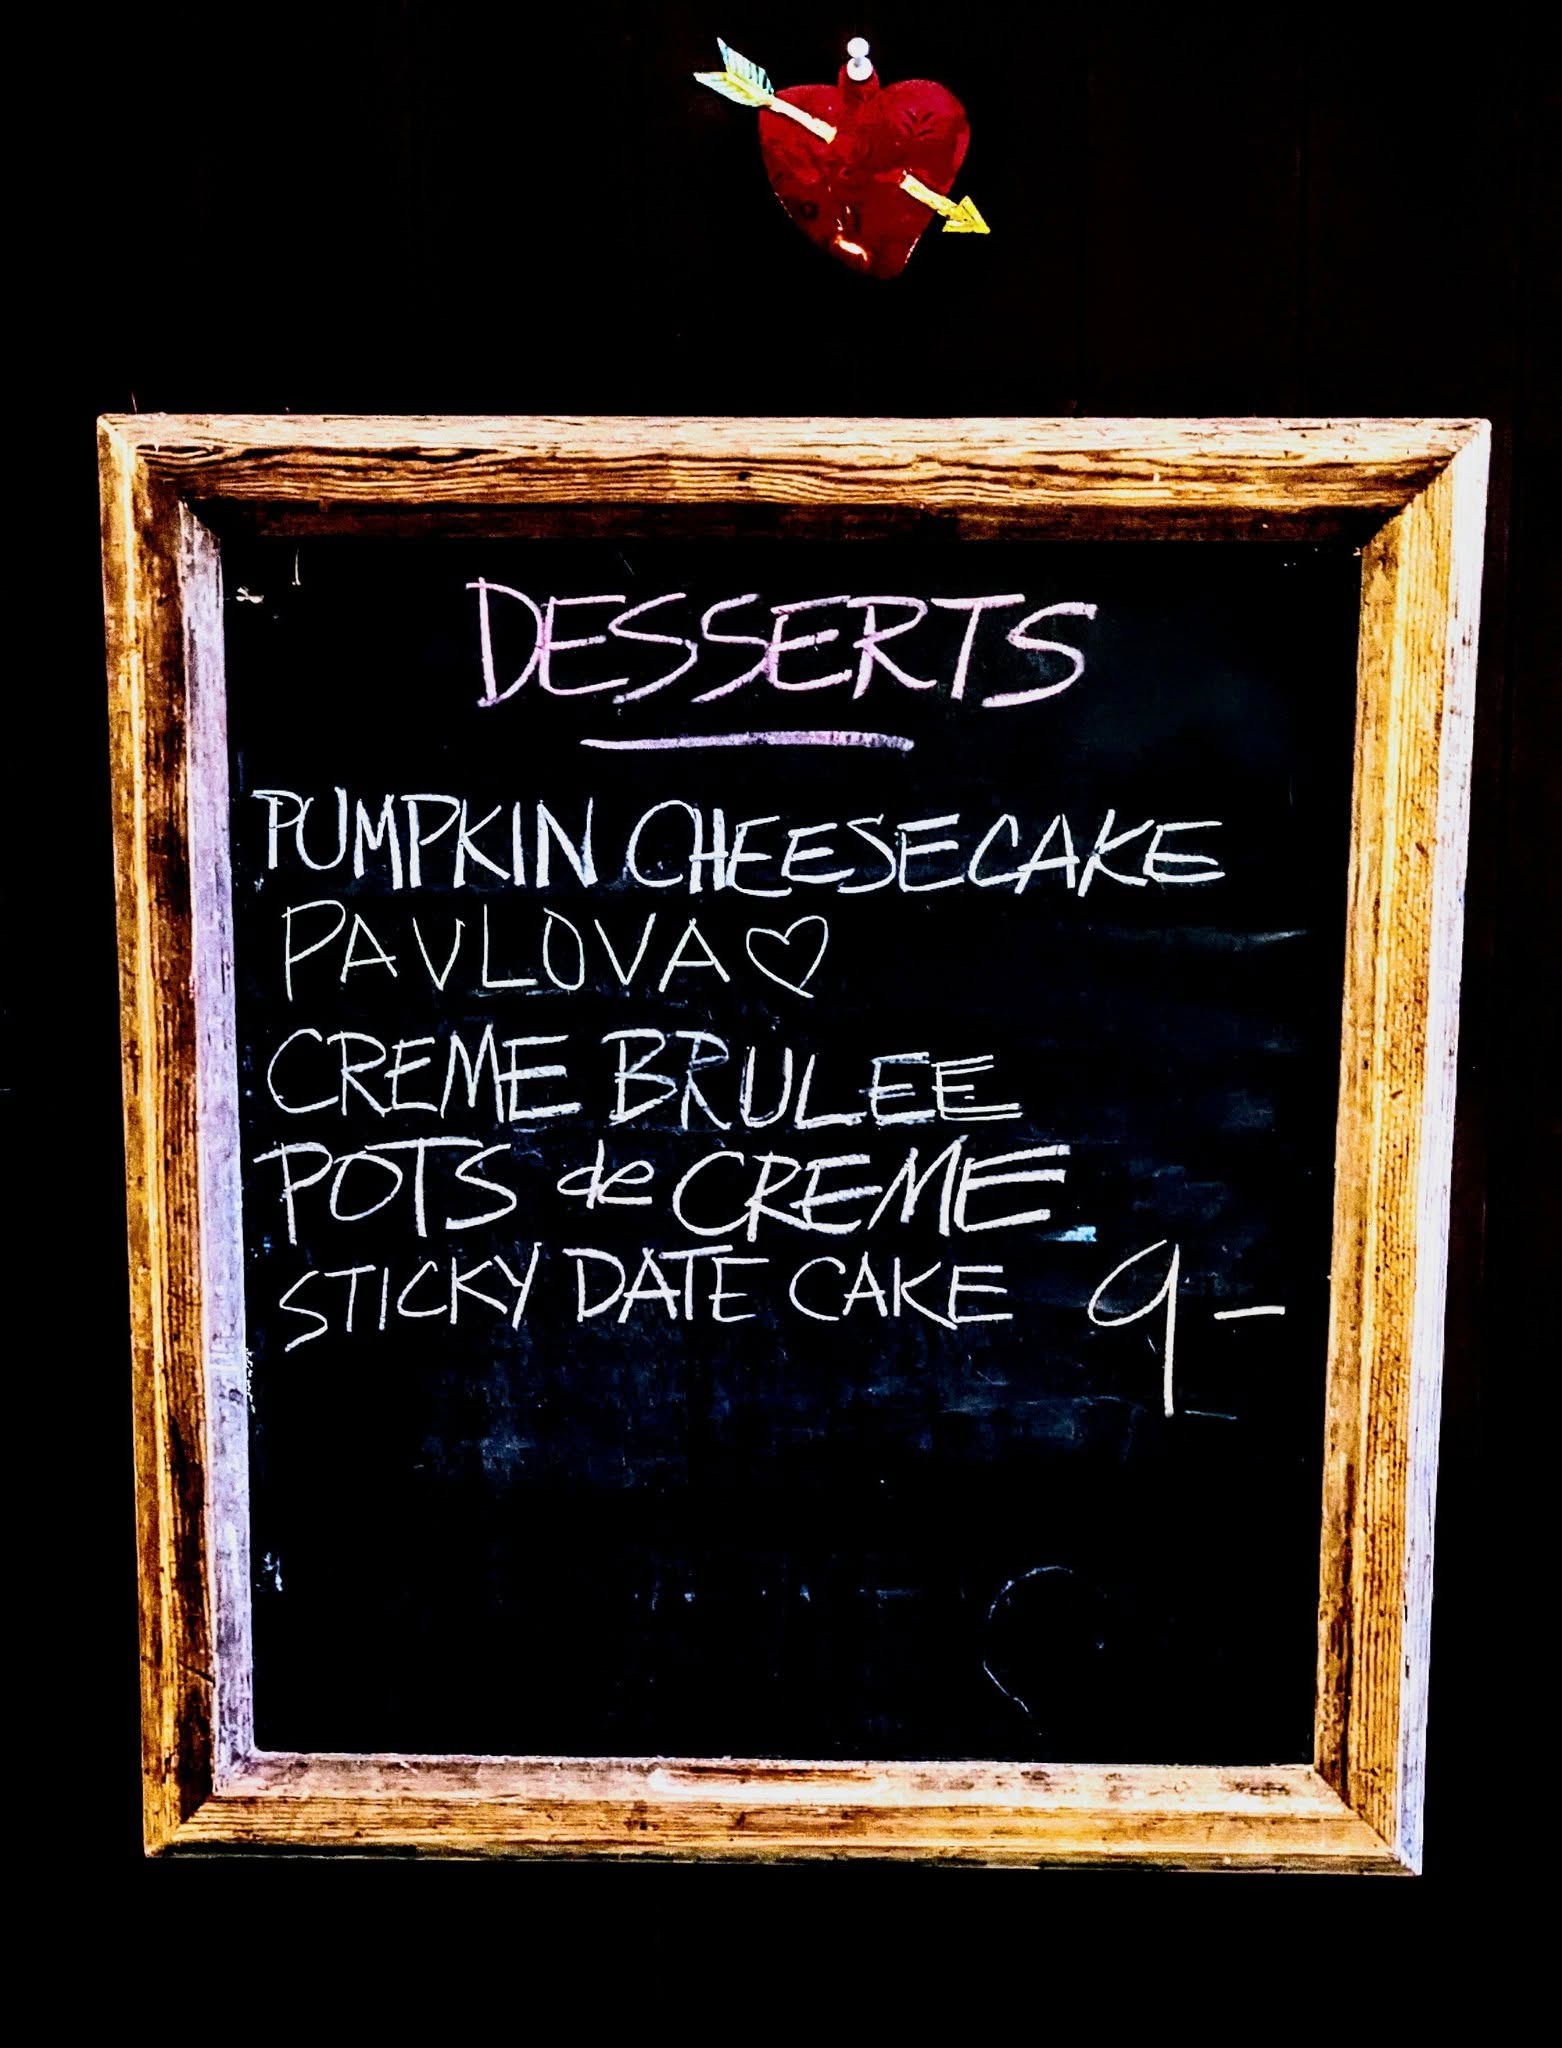 DESSERTS
PUMPKIN CHEESECAKE
PAVLOVA♡
CREME BRULEE
POTS de CREME
STICKY DATE CAKE 9-